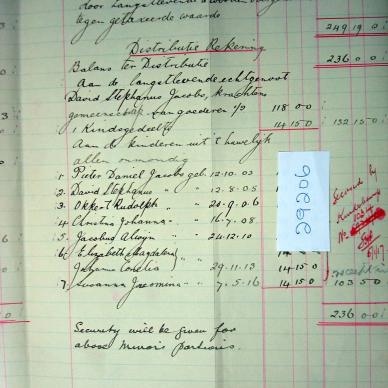 door langstlevende
tegen getaxeerde waarde 249 19 0
Distributie Rekening
Balans ter Distributie 236 0 0
Aan de langstlevende echtgenoot
David Stephanus Jacobs, krachtens
gemeenschap van goederen 1/2 118 0 0
1 Kindsgedeelte 14 15 0 132 15 0
Aan de kinderen uit't huwelijk
allen onmondig
1 Pieter Daniel Jacobs geb. 12.10.03
2. David Stephanus " " 12.8.05
3 Okkert Rudolph " " 20.9.06
4 Christina Johanna " " 16.7.08
5 Jacobus Alwyn " " 24.12.10
6 Elizabeth Magdalena
Cornelia " 29.11.13 14 15 0
7. Susanna Jacomina " " 7.5.16 14 15 0 103 5 0
236 0 0
Security will be given for
above Minors portions.
29206
Secured by
No